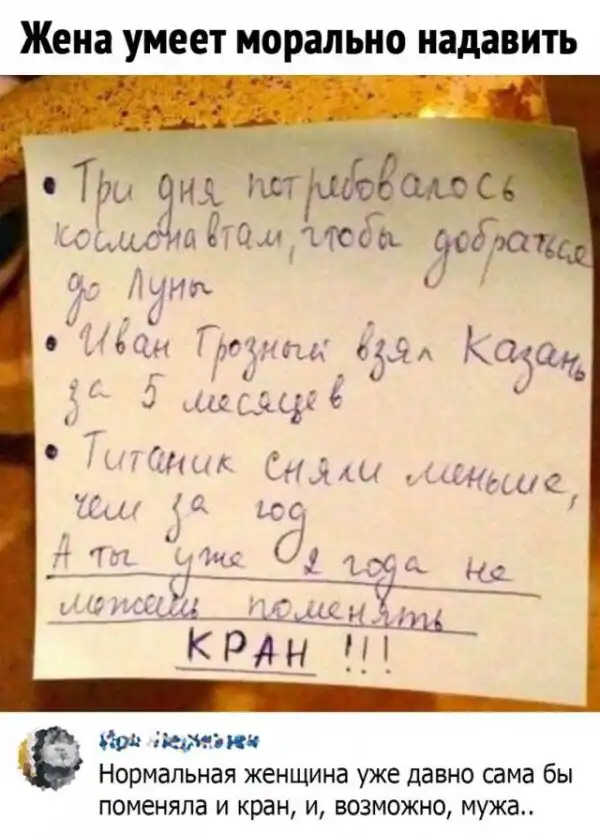 Жена умеет морально надавить
• Три дня потребовалось
космонавтам, чтобы добраться
до Луны
• Иван Грозный взял Казань
за 5 месяцев
• Титаник сняли меньше,
чем за год
А ты уже 2 года не
можешь поменять
КРАН !!!
Нормальная женщина уже давно сама бы
поменяла и кран, и, возможно, мужа..